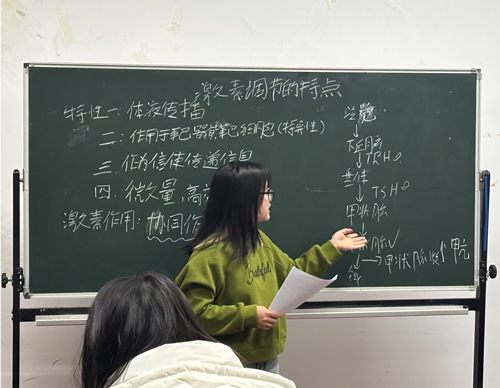 激素调节的特点
特性一:体液传播
二:作用于靶器官靶细胞(特异性)
三:作为信使传递信息
四:微量,高
激素作用:协同作
下丘脑
TRH
垂体
TSH
甲状腺
甲状腺 甲亢